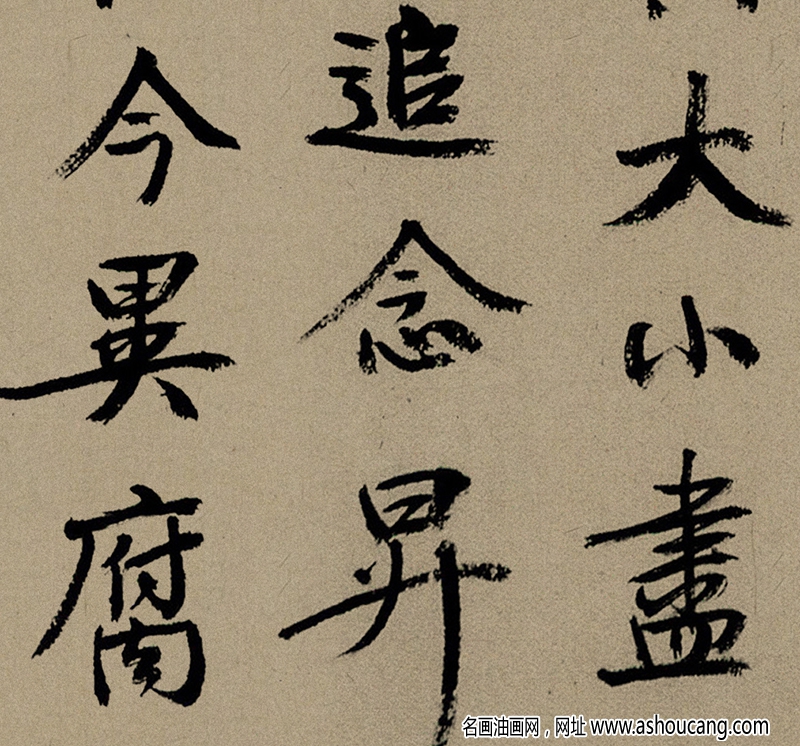 大小盡
追念昇
今異腐
名画油画网，网址 www.ashoucang.com